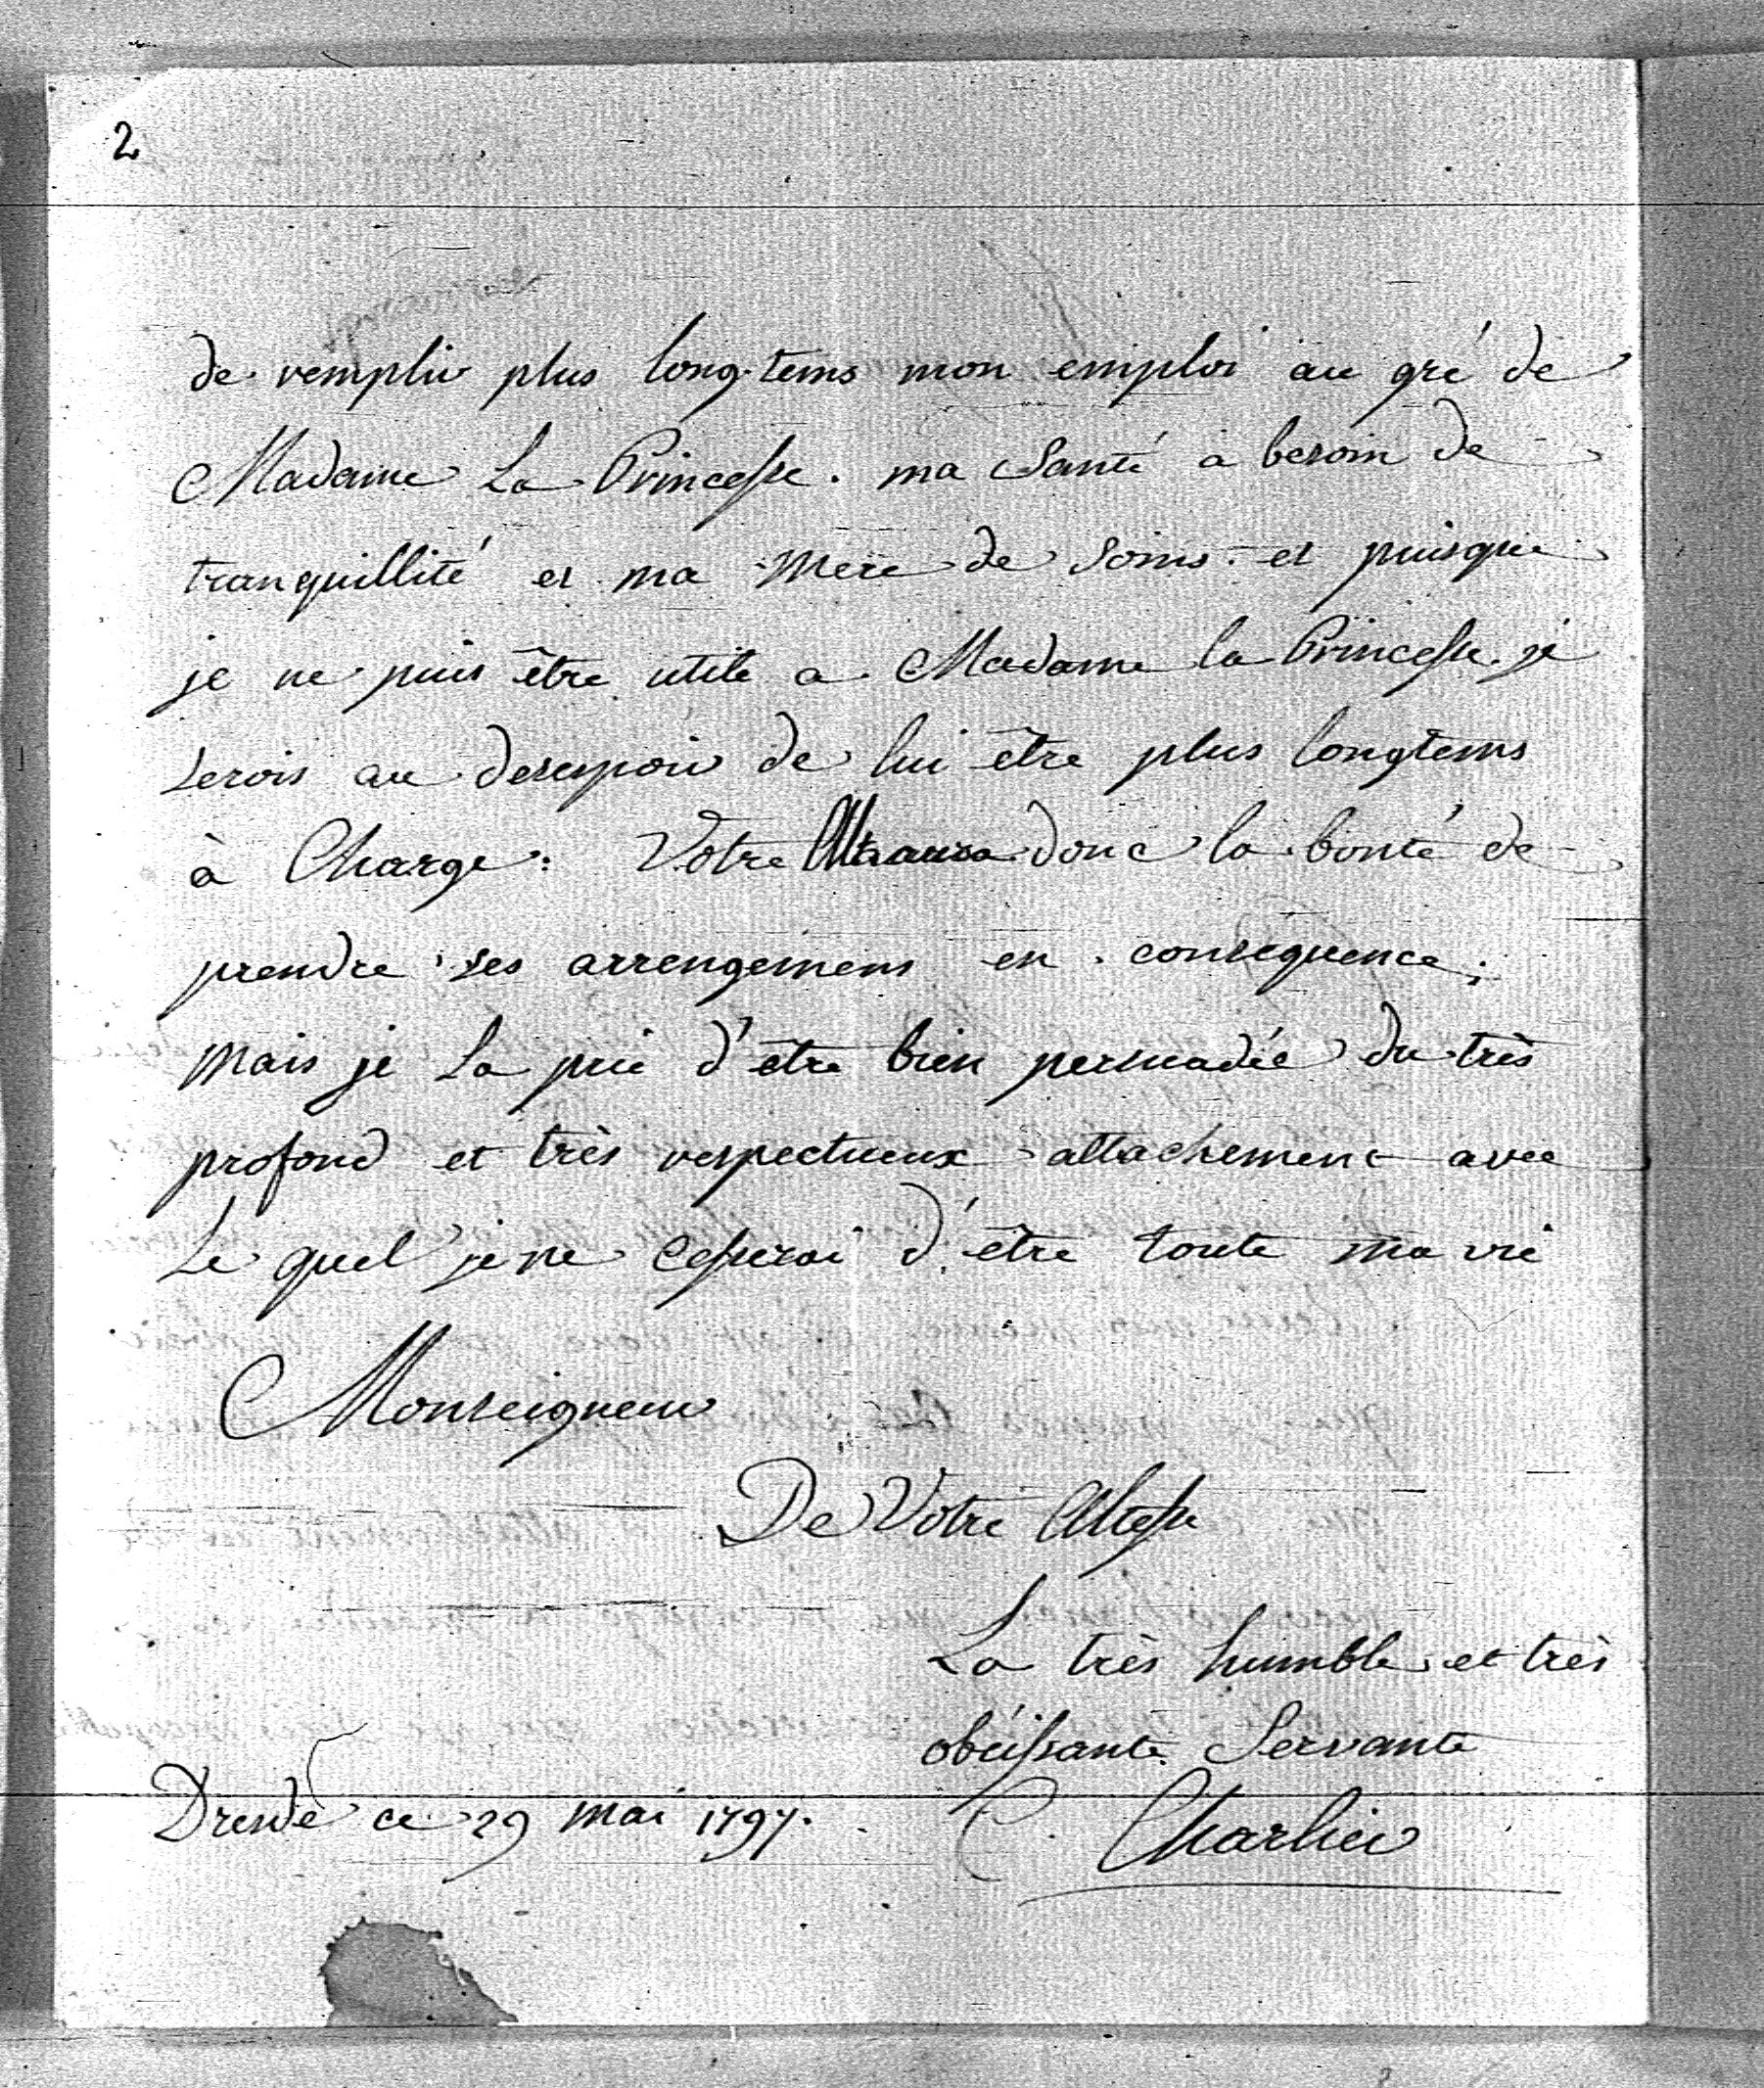 2
de remplir plus long-tems mon emploi au gré de
Madame La Princesse. ma Santé a besoin de
tranquillité et ma Mere de Soins. et puisque
je ne puis être utile a Madame la Princesse. je
serois au desespoir de lui être plus longtems
à Charge: Votre aura donc la bonté de
prendre ses arrengemens en consequence;
Mais je La prie d'être bien persuadée du très
profond et très respectueux attachement avec
Le quel je ne cesserai d'être toute ma vie
Monseigneur
De Votre Altesse
La très humble et très
obéissante Servante
Dresde ce 29 mai 1797.
C. Charlier